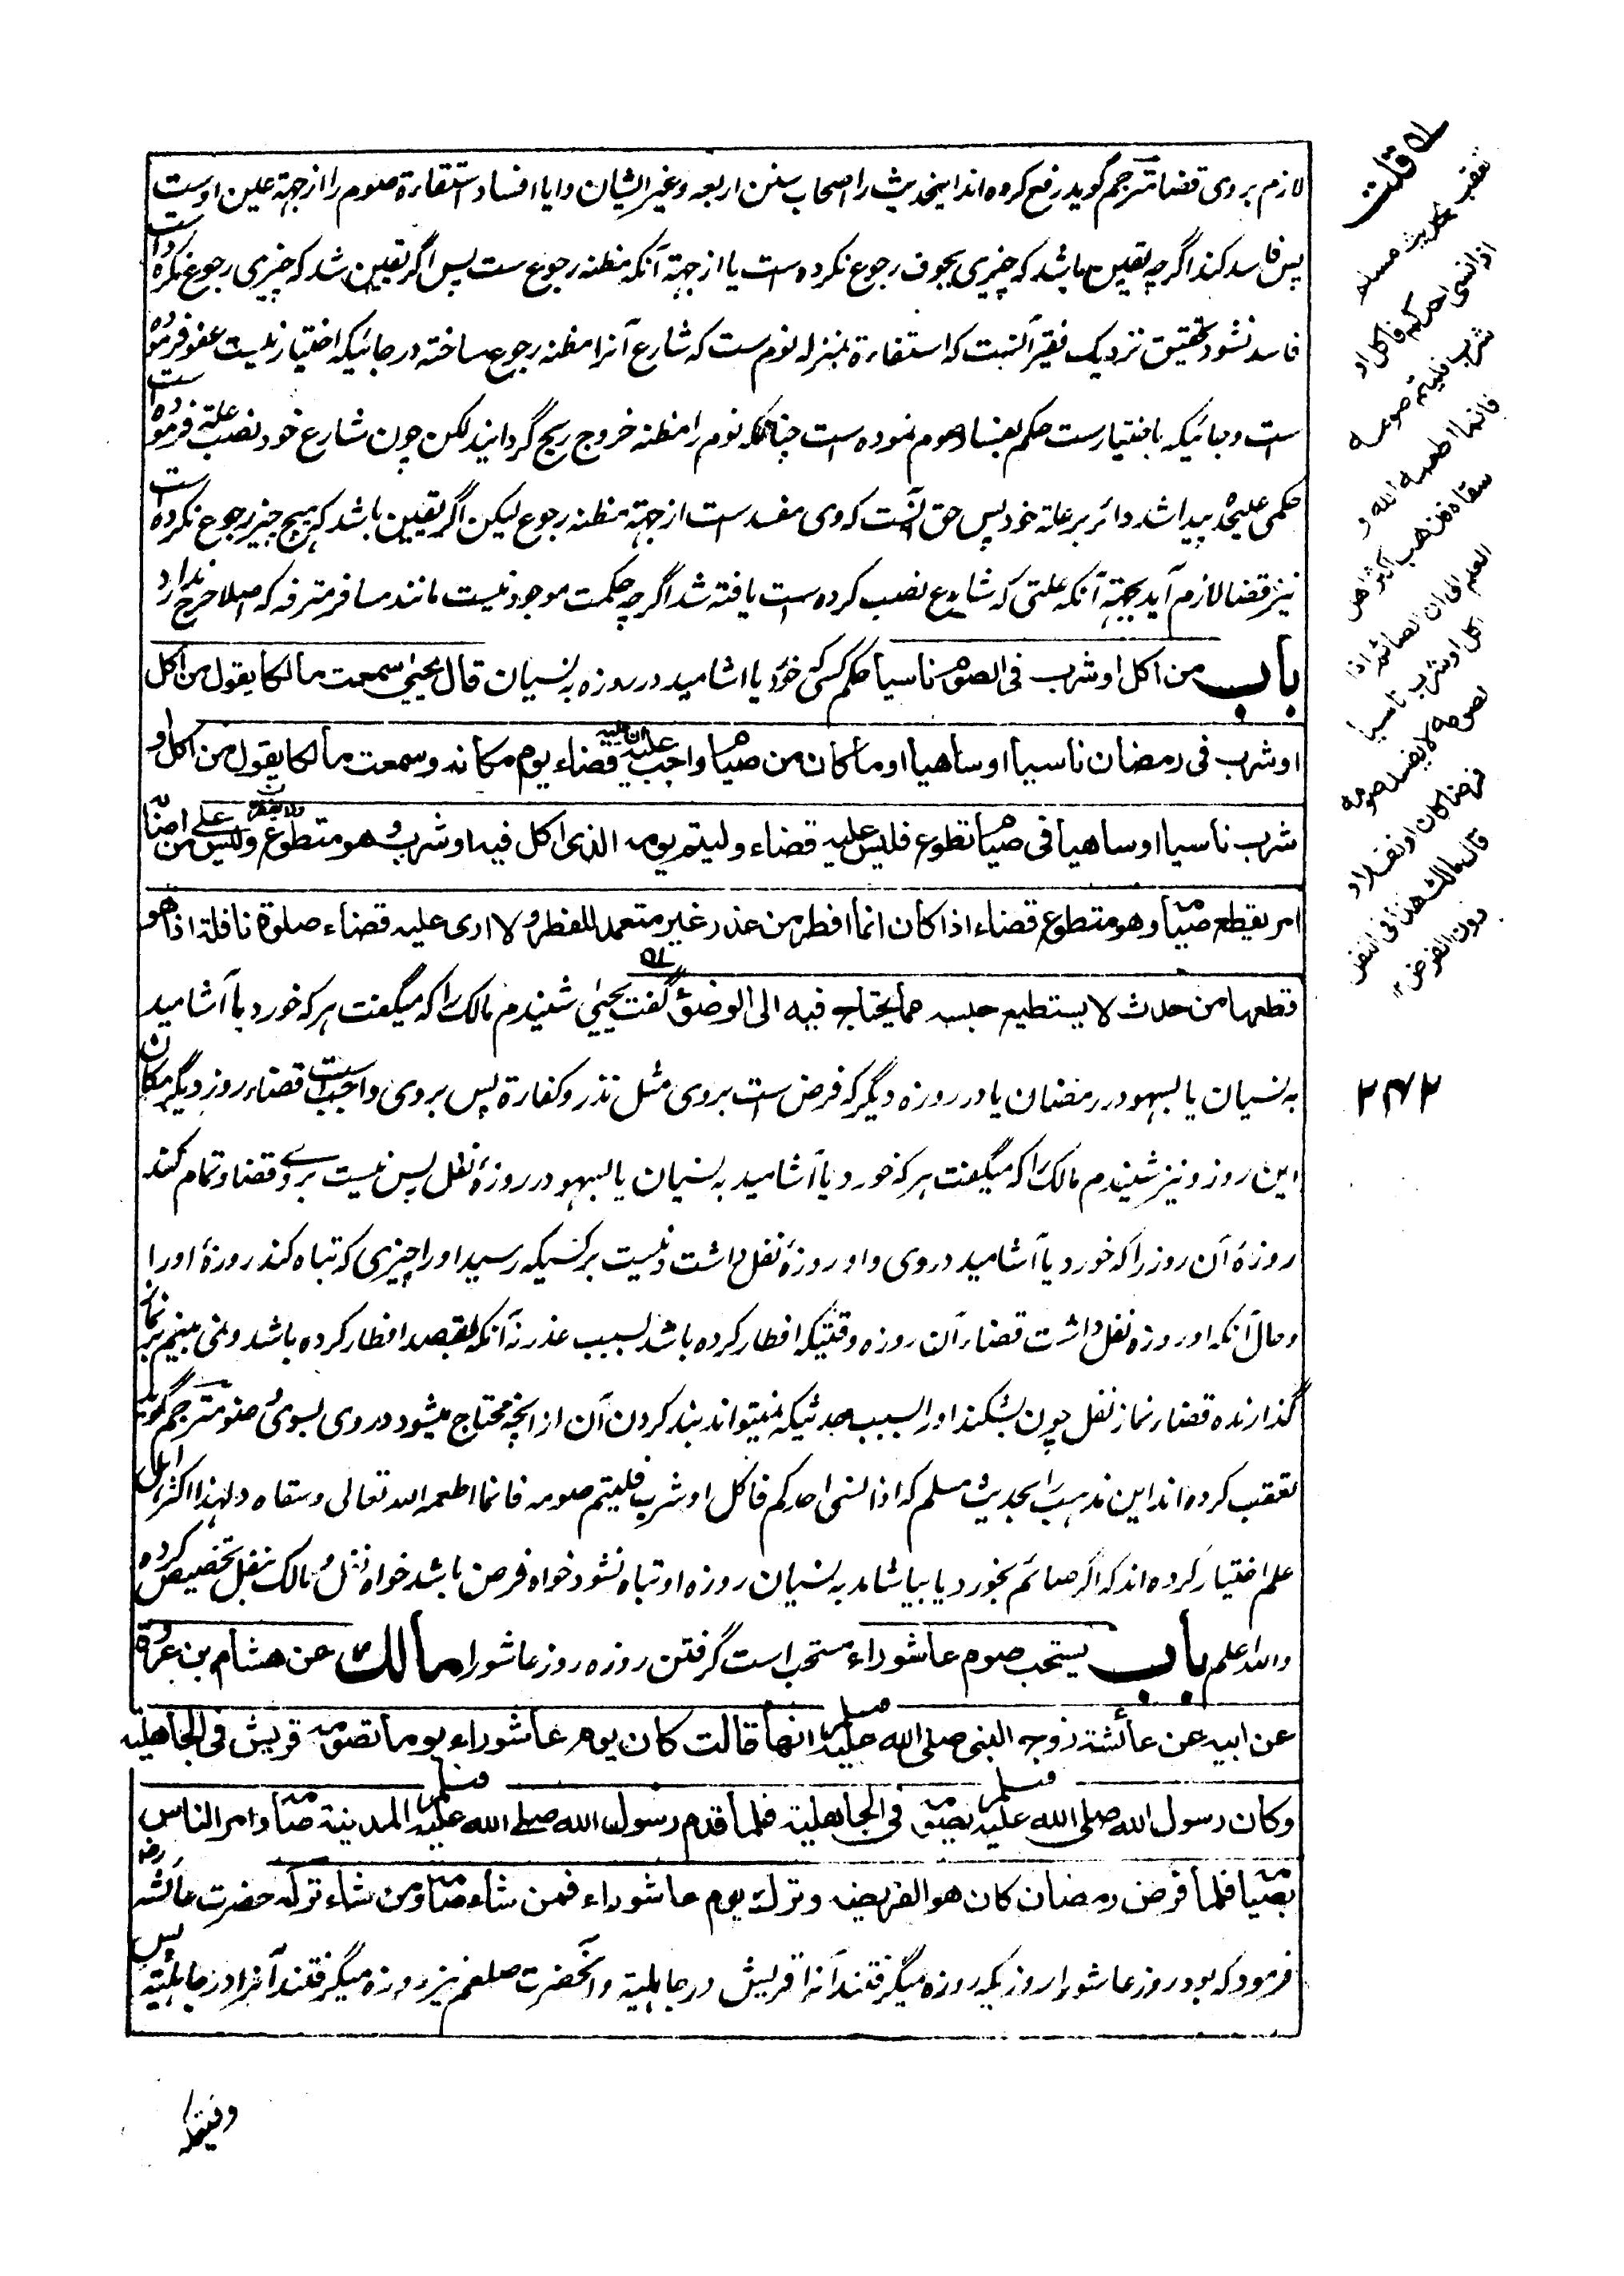 لازم بروی قضا مترجم گوید رفع کرده اند اینحدیث را اصحاب سنن اربعه و غیر ایشان و ایا افساد استقاءة صوم را از جهة عین اوست
پس فاسد کند اگرچه یقین باشد که چیزی بجوف رجوع نکرده است یا از جهة آنکه مظنه رجوع ست پس اگر یقین شد که چیزی رجوع نکرده است
فاسد نشود تحقیق نزدیک فقیر آنست که استقاءة بمنزله نوم ست که شارع آنرا مظنه رجوع ساخته در جائیکه اختیار نیست عفو فرموده
ست و جائیکه باختیار ست حکم بفساد صوم نموده است چنانکه نوم را مظنه خروج ریح گردانید لکن چون شارع خود نصب علة فرموده ست
حکمی علیحده پیدا شد دائر بر علة خود پس حق آنست که وی مفسد ست از جهة مظنه رجوع لیکن اگر یقین باشد که هیچ چیز رجوع نکرده است
نیز قضا لازم آید بجهة آنکه علتی که شارع نصب کرده است یافته شد اگرچه حکمت موجود نیست مانند مسافر مترفه که اصلا حرج ندارد
باب من اکل او شرب فی الصوم ناسیا حکم کسی خورد یا اشامید در روزه به نسیان قال یحیی سمعت مالکا یقول من اکل
او شرب فی رمضان ناسیا او ساهیا او ما کان من صیام واجب علیه ان علیه قضاء یوم مکانه و سمعت مالکا یقول من اکل او
شرب ناسیا او ساهیا فی صیام تطوع فلیس علیه قضاء ولیتم یومه الذی اکل فیه او شرب و هو متطوع ولا یفطره ولیس علی من اصابه
امر یقطع صیامه و هو متطوع قضاء اذا کان انما افطر من عذر غیر متعمد للفطر ولا اری علیه قضاء صلوة نافلة اذا هو
قطعها من حدث لا یستطیع حبسه مما یحتاج فیه الی الوضوء گفت یحیی شنیدم مالک را که میگفت هر که خورد یا آشامید
به نسیان یا بسهو در رمضان یا در روزه دیگر که فرض ست بروی مثل نذر و کفارة پس بروی واجب است قضاء روز دیگر مکان
این روز و نیز شنیدم مالک را که میگفت هر که خورد یا آشامید به نسیان یا بسهو در روزۀ نفل پس نیست بروے قضا و تمام کند
روزۀ آن روز را که خورد یا آشامید در وی و او روزۀ نفل داشت و نیست بر کسیکه رسید او را چیزی که تباه کند روزۀ او را
و حال آنکه او روزه نفل داشت قضاء آن روزه وقتیکه افطار کرده باشد بسبب عذر نه آنکه بقصد افطار کرده باشد و نمی بینم بر نماز
گذارنده قضاء نماز نفل چون بشکند او را بسبب حدثیکه نمیتواند بند کردن آن از انچه محتاج میشود در وی بسوی وضو مترجم گوید
تعقب کرده اند این مذهب را بحدیث مسلم که اذا نسی احدکم فاکل او شرب فلیتم صومه فانما اطعمه الله تعالی و سقاه و لهذا اکثر اهل
علم اختیار کرده اند که اگر صائم بخورد یا بیاشامد به نسیان روزه او تباه نشود خواه فرض باشد خواه نفل و مالک بنفل تخصیص کرده
والله اعلم باب یستحب صوم عاشوراء مستحب است گرفتن روزه روز عاشورا مالک عن هشام بن عروة
عن ابیه عن عائشة زوج النبی صلی الله علیه وسلم انها قالت کان یوم عاشوراء یوما تصومه قریش فی الجاهلیة
وکان رسول الله صلی الله علیه وسلم یصومه فی الجاهلیة فلما قدم رسول الله صلے الله علیه وسلم المدینة صامه وامر الناس
بصیامه فلما فرض رمضان کان هو الفریضه وترک یوم عاشوراء فمن شاء صامه ومن شاء ترکه حضرت عائشه رض
فرمود که بود روز عاشورا روزیکه روزه میگرفتند آنرا قریش در جاهلیة و آنحضرت صلعم نیز روزه میگرفتند آنرا در جاهلیة پس
قلت
تعقب بحدیث مسلم
اذا نسی احدکم فاکل او
شرب فلیتم صومه
فانما اطعمه الله و
سقاه فذهب اکثر اهل
العلم الی ان الصائم اذا
اکل او شرب ناسیا
لصومه لا یفسد صومه
فرضا کان او نفلا و
قال مالک هذا فی النفل
دون الفرض ۱۲
۲۴۲